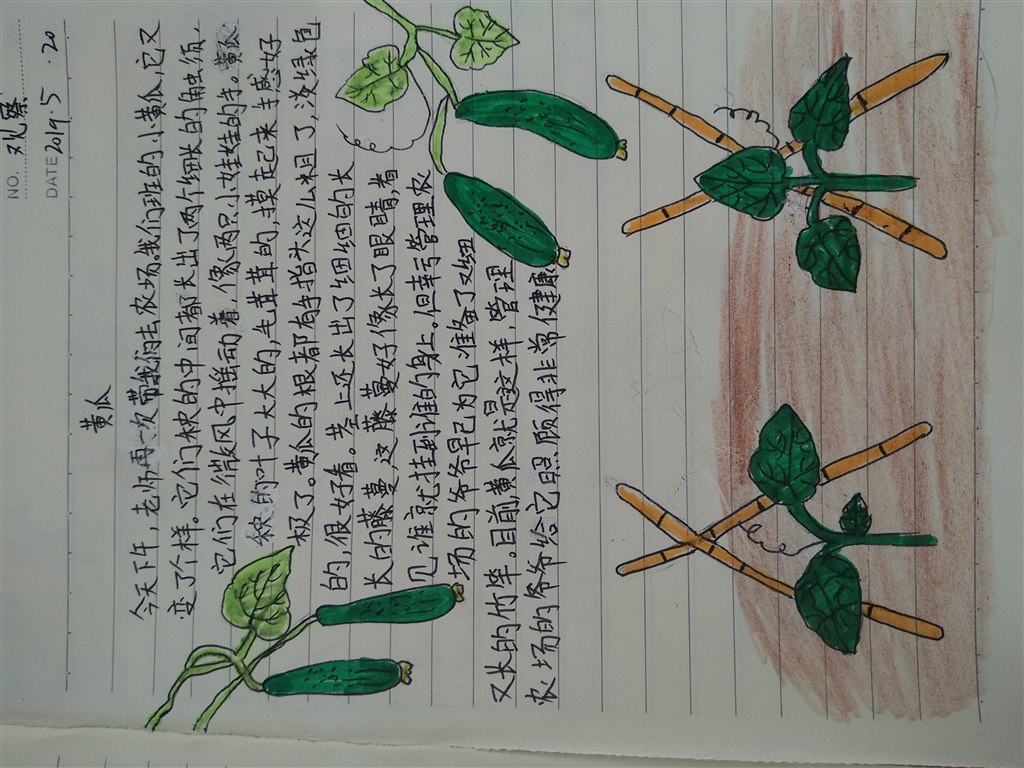 NO. 观察
DATE 2019.5.20
黄瓜
今天下午,老师再一次带我们去农场。我们班的小黄瓜,它又
变了个样。它们秧的中间都长出了两个细长的触须,
它们在微风中摇动着,像两只小娃娃的手。黄瓜
秧的叶子大大的,毛茸茸的,摸起来手感好
极了。黄瓜的根都有手指头这么粗了,淡绿色
的,很好看。茎上还长出了细细的长
长的藤蔓,这藤蔓好像长了眼睛,看
见谁就挂到谁的身上。但幸亏管理农
场的爷爷早已为它准备了又细
又长的竹竿。目前黄瓜就是这样,管理
农场的爷爷给它照顾得非常健康